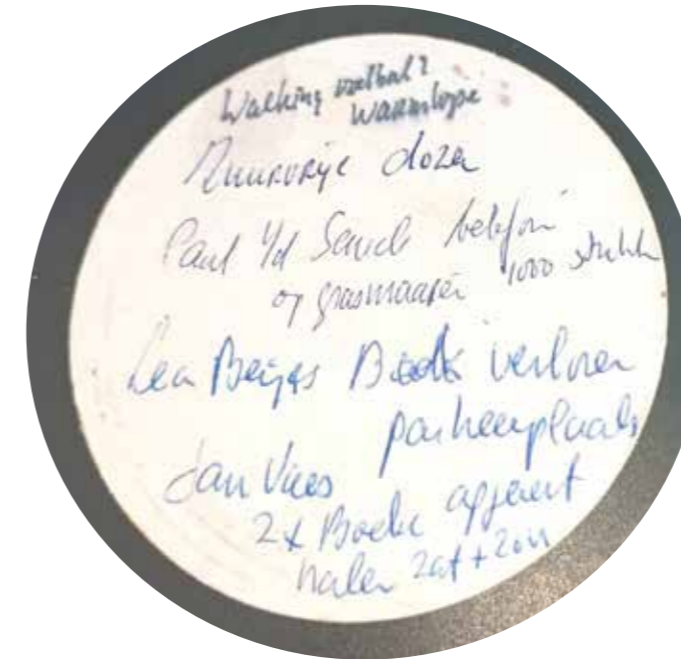 Walking voetbal?
Warmlope
Zuurvrije dozen
Paul vd Sande telefoon
op grasmaaier 1000 stukken
Beijes Boek verloren
parkeerplaats
Jan Vries
2x Boek
halen zat + zon